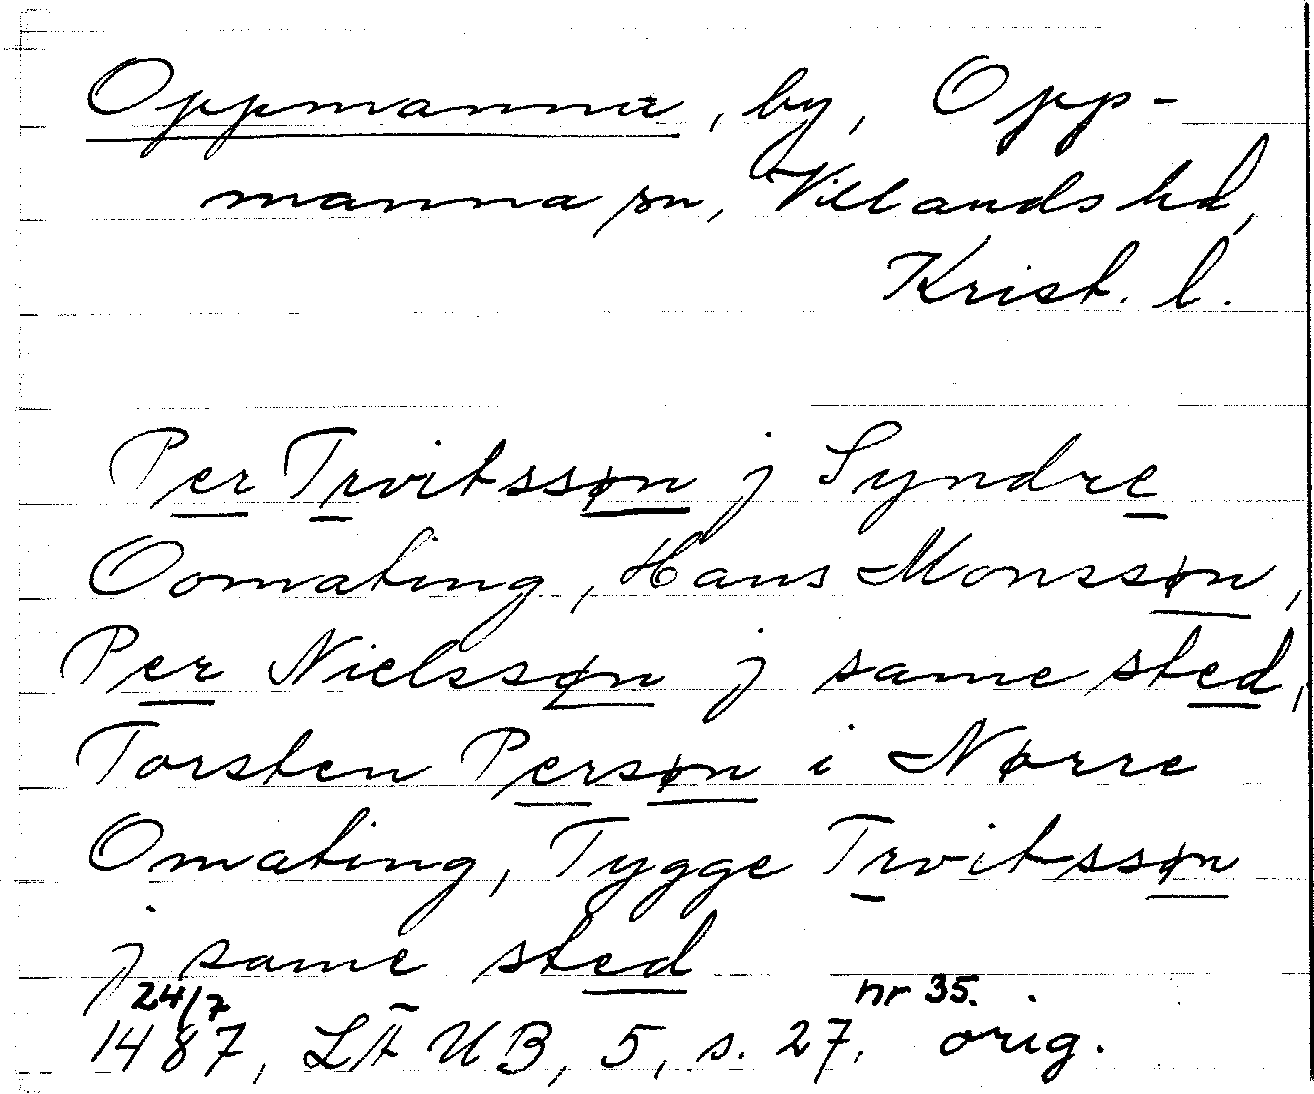 Oppmanna, by, Opp-
manna sn, Villands hd,
Krist. l.
Per Trvitssøn j Syndre
Oomating, Hans Monssøn,
Per Nielssøn j same sted,
Torsten Persøn i Nørre
Omating, Tygge Trvitssøn
j same sted
24/7 nr 35.
1487, LÄUB, 5, s. 27. orig.